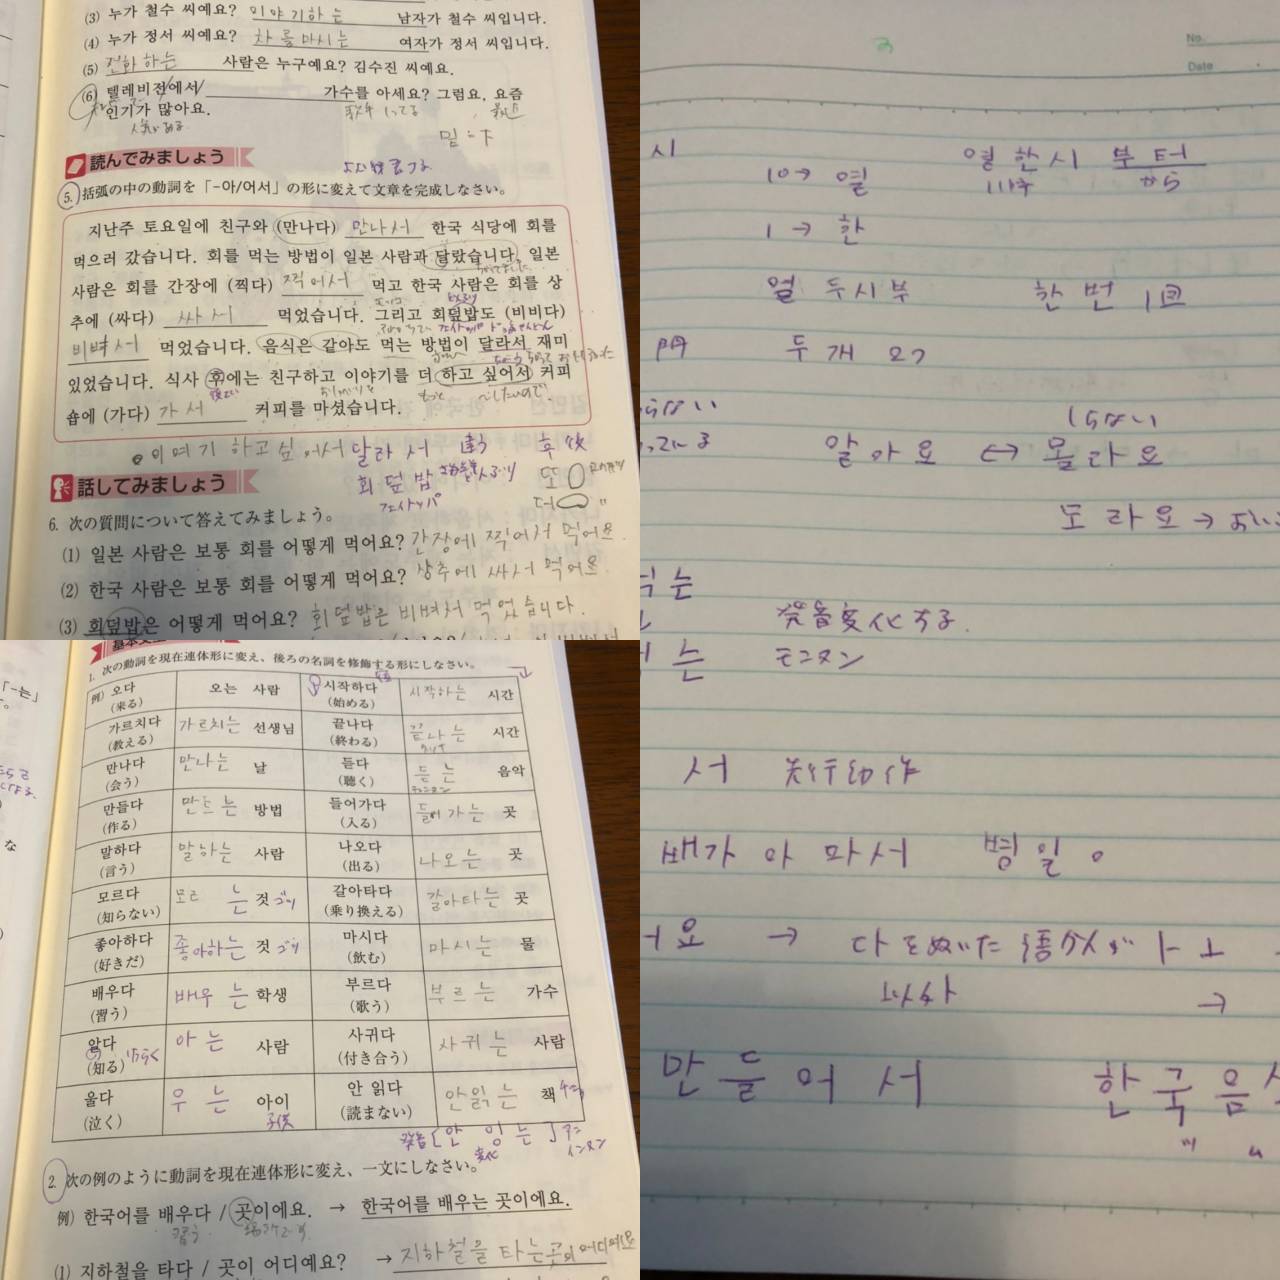 (3) 누가 철수 씨예요? 이야기하는 남자가 철수 씨입니다.
(4) 누가 정서 씨예요? 차를마시는 여자가 정서 씨입니다.
(5) 전화하는 사람은 누구예요? 김수진 씨예요.
(6) 텔레비전에서 가수를 아세요? 그럼요, 요즘
인기가 많아요.
読んでみましょう
5. 括弧の中の動詞を「-아/어서」の形に変えて文章を完成しなさい。
지난주 토요일에 친구와 (만나다) 만나서 한국 식당에 회를
먹으러 갔습니다. 회를 먹는 방법이 일본 사람과 달랐습니다. 일본
사람은 회를 간장에 (찍다) 찍어서 먹고 한국 사람은 회를 상
추에 (싸다) 싸서 먹었습니다. 그리고 회덮밥도 (비비다)
비벼서 먹었습니다. 음식은 같아도 먹는 방법이 달라서 재미
있었습니다. 식사 후에는 친구하고 이야기를 더 하고 싶어서 커피
숍에 (가다) 가서 커피를 마셨습니다.
이여기 하고싶어서 달라서 違う
회덮밥
話してみましょう
6. 次の質問について答えてみましょう。
(1) 일본 사람은 보통 회를 어떻게 먹어요? 간장에 찍어서 먹어요.
(2) 한국 사람은 보통 회를 어떻게 먹어요? 상추에 싸서 먹어요.
(3) 회덮밥은 어떻게 먹어요? 회덮밥은 비벼서 먹었습니다.
No.
Date
시 10→ 열 열한시 부터
11時 から
1 → 한
열두시부 한번 1回
두개 2つ
しらない
알아요 ↔ 몰라요
모라요→
는 発音変化する.
는 モニヌン
서 先行動作
배가 아마서 병일。
요 → 다をぬいた語幹がㅏㅗ
以外 →
만들어서 한국음
1. 次の動詞を現在連体形に変え、後ろの名詞を修飾する形にしなさい。
例) 오다 (来る) 오는 사람 시작하다 (始める) 시작하는 시간
가르치다 (教える) 가르치는 선생님 끝나다 (終わる) 끝나는 시간
만나다 (会う) 만나는 날 듣다 (聴く) 듣는 음악
만들다 (作る) 만드는 방법 들어가다 (入る) 들어가는 곳
말하다 (言う) 말하는 사람 나오다 (出る) 나오는 곳
모르다 (知らない) 모르는 것 갈아타다 (乗り換える) 갈아타는 곳
좋아하다 (好きだ) 좋아하는 것 마시다 (飲む) 마시는 물
배우다 (習う) 배우는 학생 부르다 (歌う) 부르는 가수
알다 (知る) 아는 사람 사귀다 (付き合う) 사귀는 사람
울다 (泣く) 우는 아이 子供 안 읽다 (読まない) 안읽는 책
発音[안 잉는]
変化
2. 次の例のように動詞を現在連体形に変え、一文にしなさい。
例) 한국어를 배우다 / 곳이에요. → 한국어를 배우는 곳이에요.
習う
(1) 지하철을 타다 / 곳이 어디예요? → 지하철을 타는곳이 어디예요